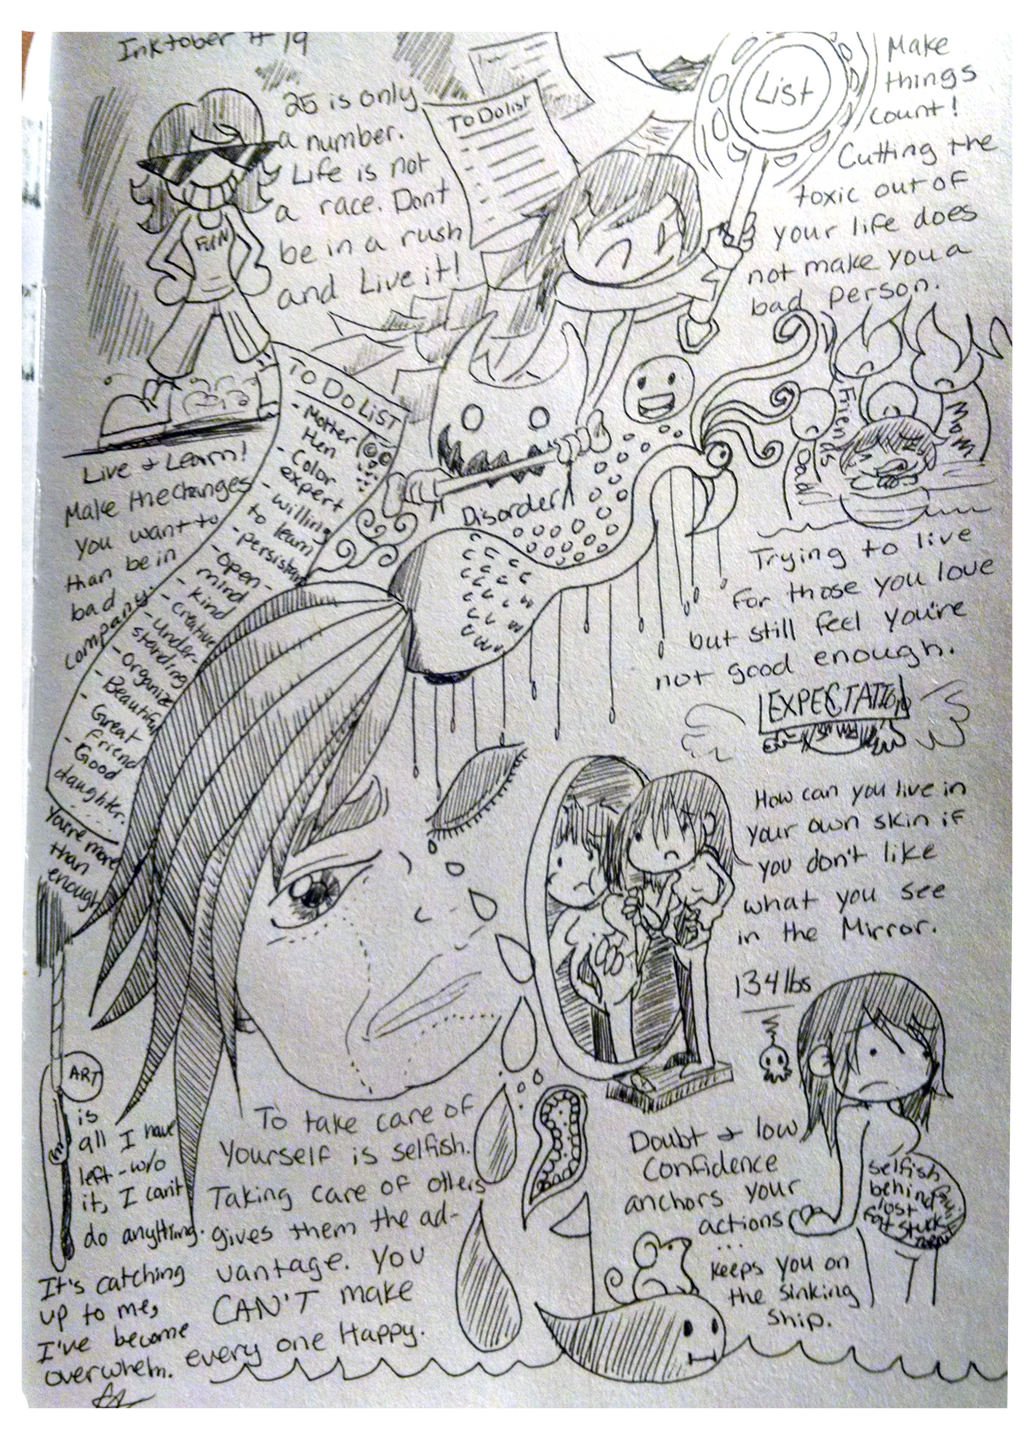 Inktober #19
25 is only
a number.
Life is not
a race. Dont
be in a rush
and Live it!
FUN
To Do list
List
Make
things
count!
Cutting the
toxic out of
your life does
not make you a
bad person.
Live & Learn!
Make the changes
you want to
than be in
bad
company.
TO DO LIST
- Mother
Hen
- Color
expert
- willing
to learn
- persistant
- open-
mind
- kind
- creative
- under-
standing
- organize
- Beautiful
- Great
friend
- Good
daughter.
You're more
than
enough
Disorder
Friends
Dad
Mom
Trying to live
for those you love
but still feel you're
not good enough.
EXPECTATIO
How can you live in
your own skin if
you don't like
what you see
in the Mirror.
134 lbs
Doubt & low
confidence
anchors your
actions
...
keeps you on
the sinking
ship.
selfish
behind
lost
Fat stuck
ART
is
all I have
left - w/o
it, I can't
do anything.
It's catching
up to me,
I've become
overwhelm.
To take care of
yourself is selfish.
Taking care of others
gives them the ad-
vantage. You
CAN'T make
every one Happy.